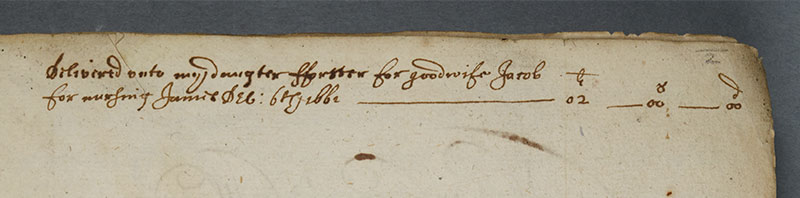 2
Delivered unto my daugter fforster for goodwife Jacob £ s d
for nursing James DEC: 6th 1661 02 00 00